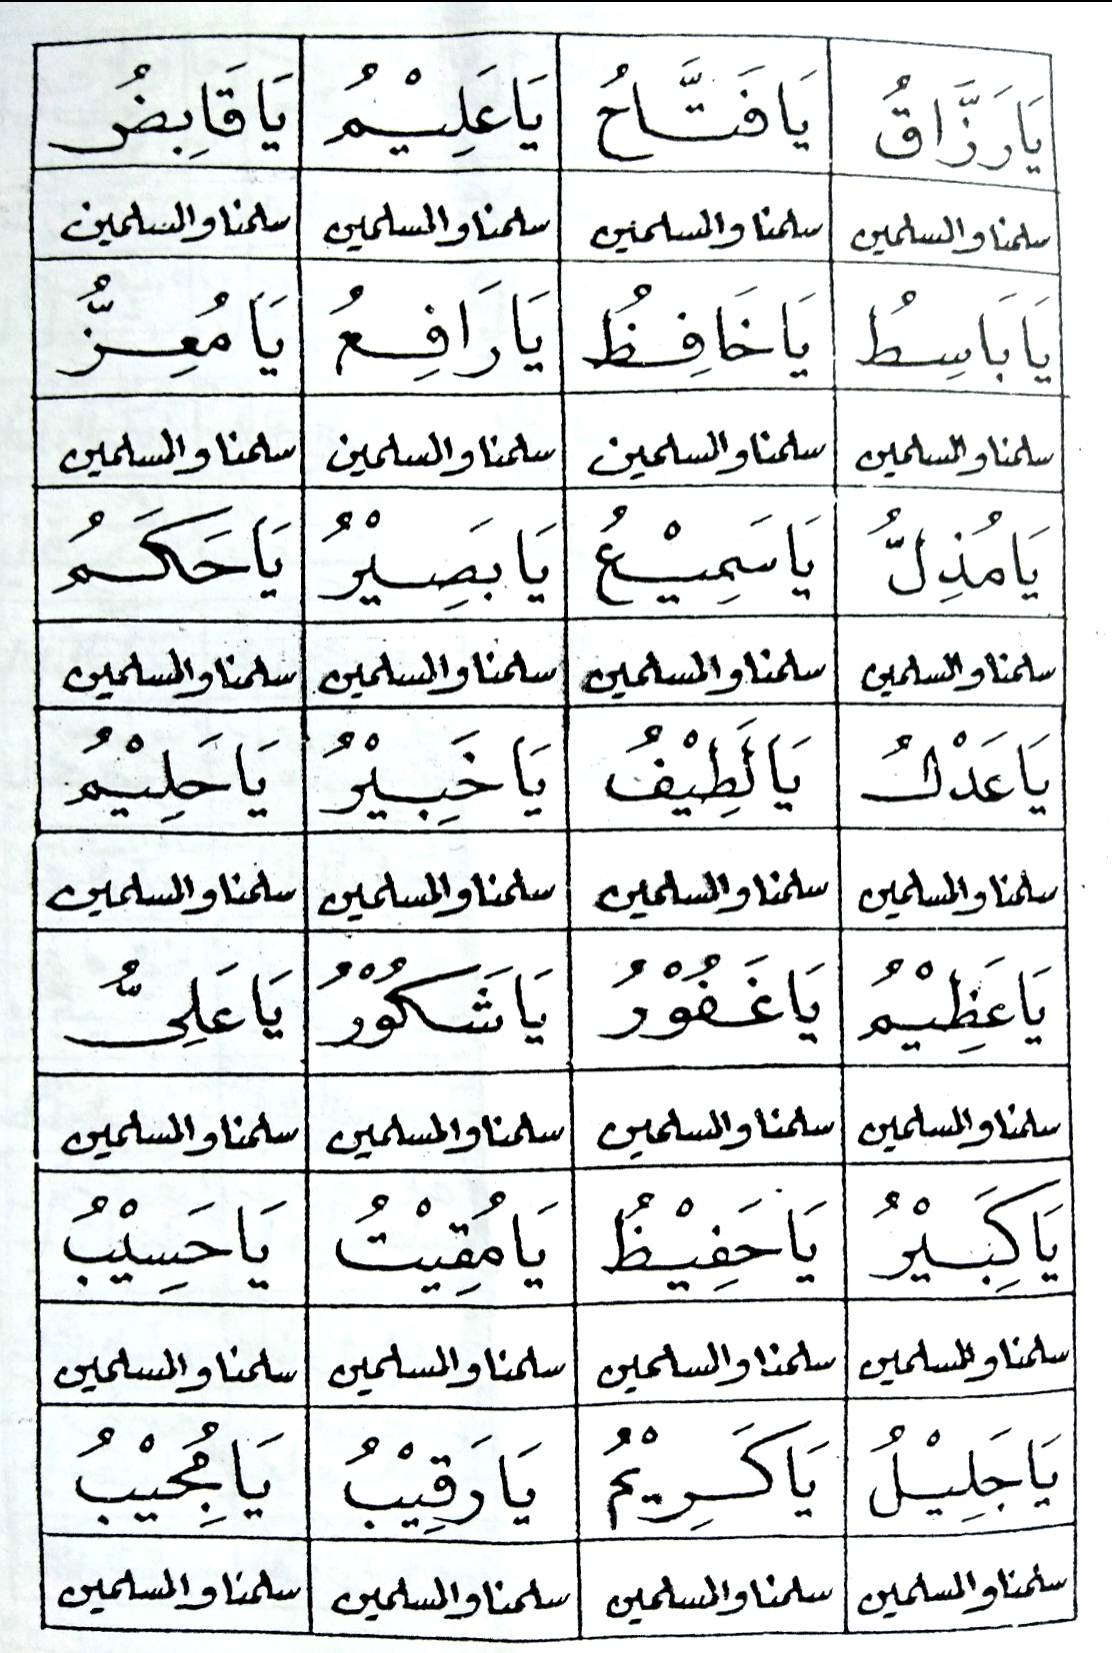 يَا رَزَّاقُ يَا فَتَّاحُ يَا عَلِيْمُ يَا قَابِضُ
سلمنا والمسلمين سلمنا والمسلمين سلمنا والمسلمين سلمنا والمسلمين
يَا بَاسِطُ يَا خَافِظُ يَا رَافِعُ يَا مُعِزُّ
سلمنا والمسلمين سلمنا والمسلمين سلمنا والمسلمين سلمنا والمسلمين
يَا مُذِلُّ يَا سَمِيْعُ يَا بَصِيْرُ يَا حَكَمُ
سلمنا والمسلمين سلمنا والمسلمين سلمنا والمسلمين سلمنا والمسلمين
يَا عَدْلُ يَا لَطِيْفُ يَا خَبِيْرُ يَا حَلِيْمُ
سلمنا والمسلمين سلمنا والمسلمين سلمنا والمسلمين سلمنا والمسلمين
يَا عَظِيْمُ يَا غَفُوْرُ يَا شَكُوْرُ يَا عَلِىُّ
سلمنا والمسلمين سلمنا والمسلمين سلمنا والمسلمين سلمنا والمسلمين
يَا كَبِيْرُ يَا حَفِيْظُ يَا مُقِيْتُ يَا حَسِيْبُ
سلمنا والمسلمين سلمنا والمسلمين سلمنا والمسلمين سلمنا والمسلمين
يَا جَلِيْلُ يَا كَرِيْمُ يَا رَقِيْبُ يَا مُجِيْبُ
سلمنا والمسلمين سلمنا والمسلمين سلمنا والمسلمين سلمنا والمسلمين